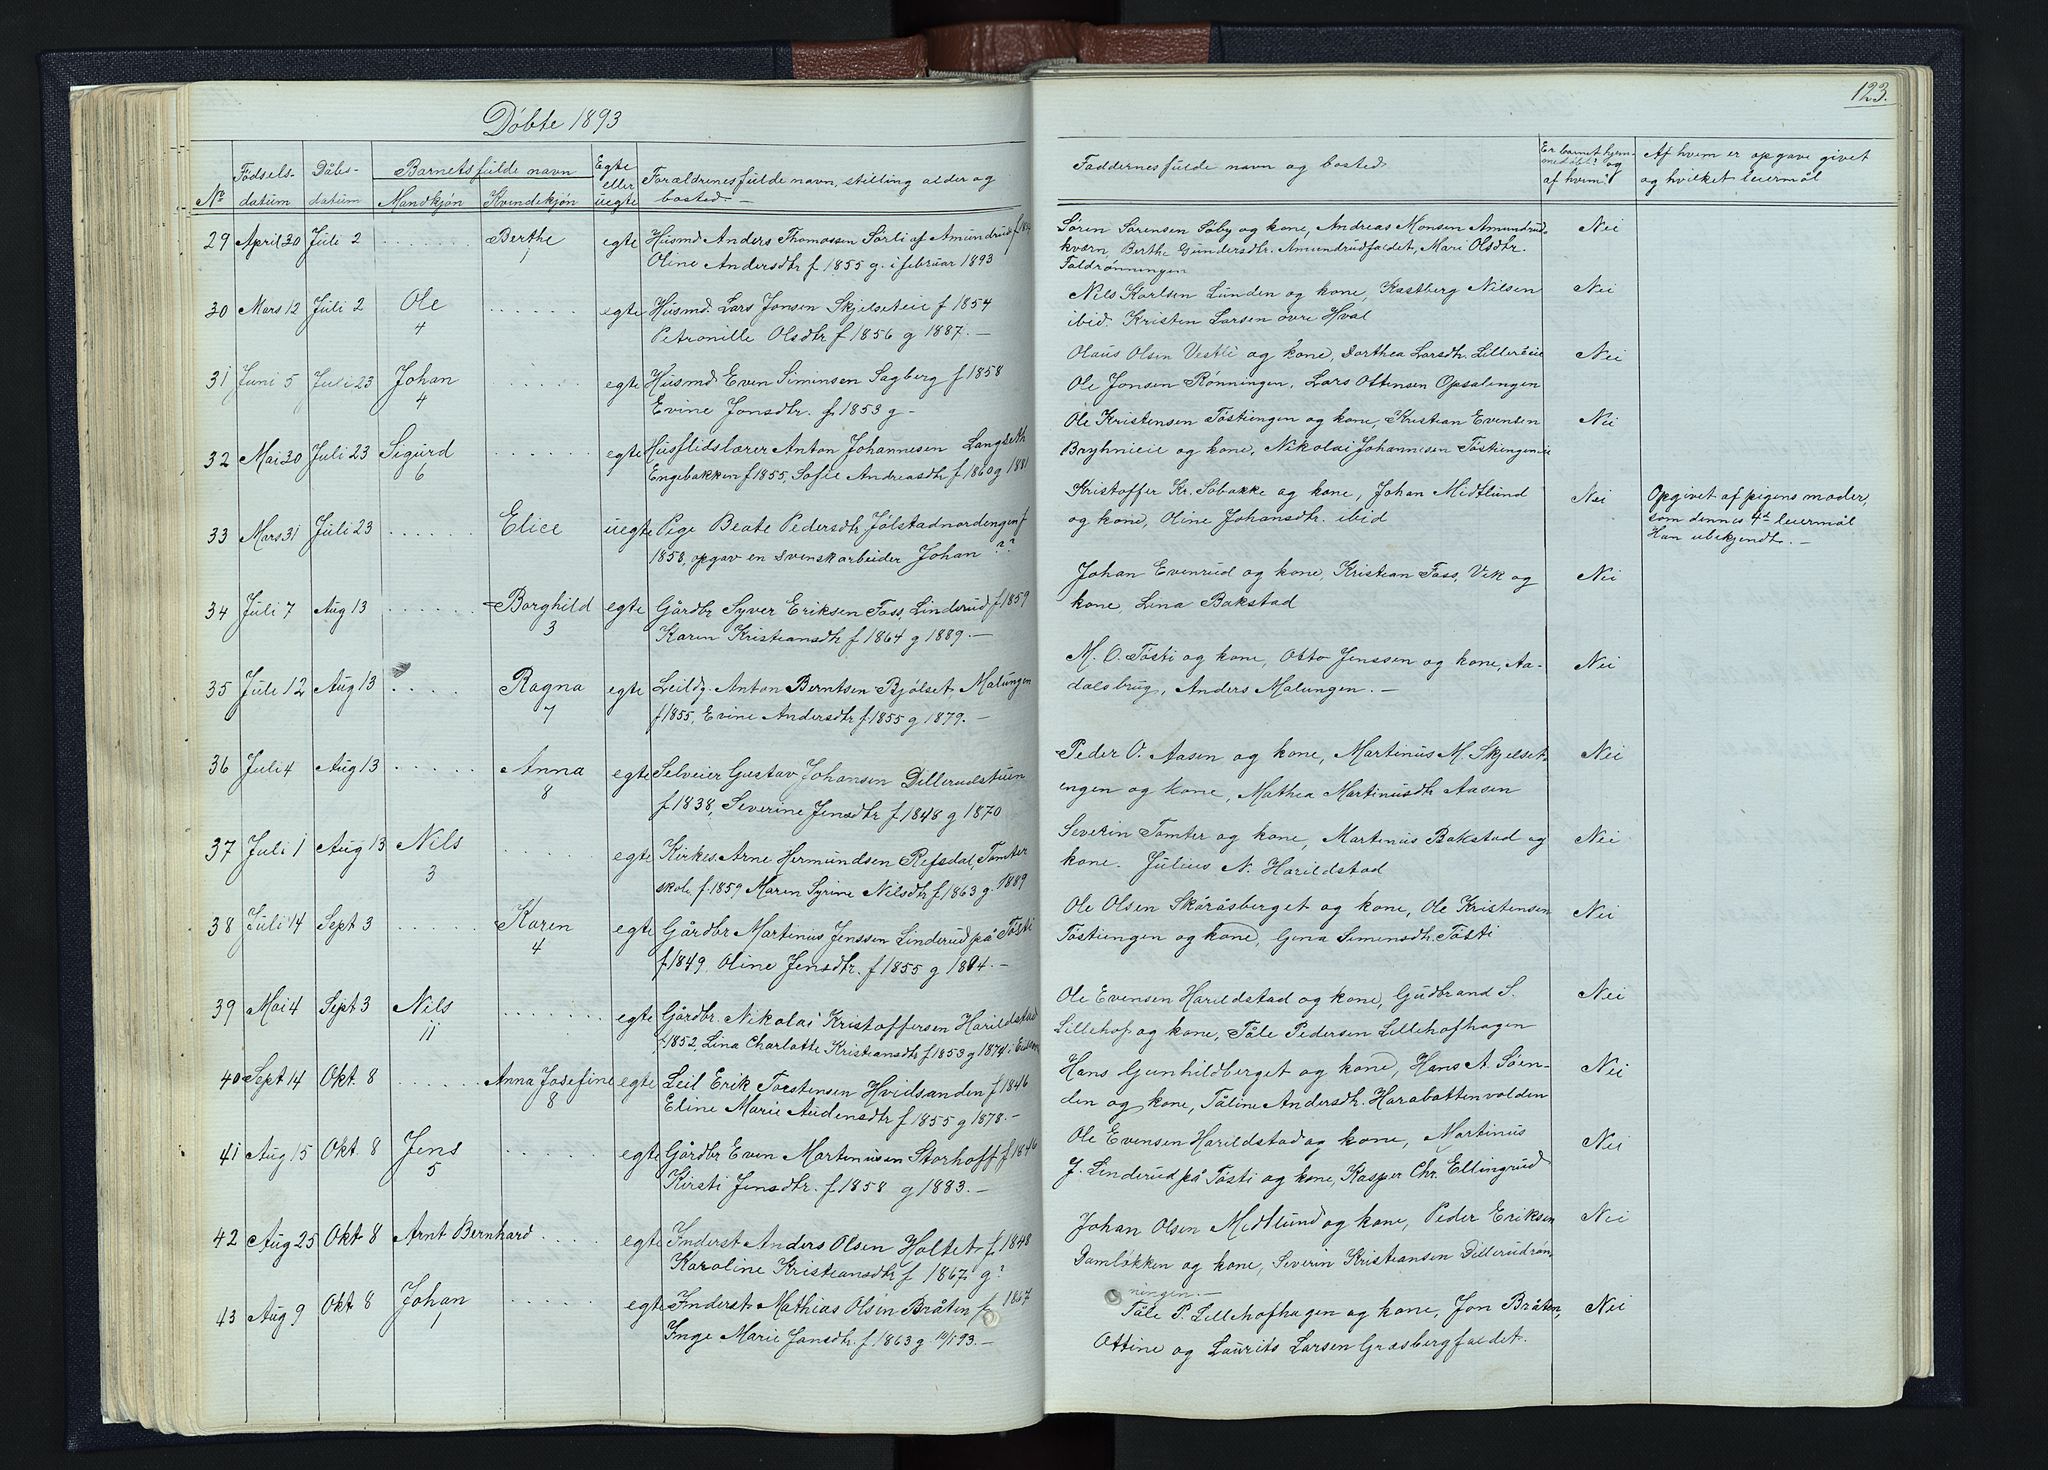 Døbte 1893
No
Fødsels-
datum
Dåbs-
datum
Barnets fulde navn
Mandkjøn
Kvindekjøn
Egte
eller
uegte
Forældrenes fulde navn, stilling alder og
bosted.
29 April 30 Juli 2 Berthe 1 egte Husmd Anders Thomassen Sørli af Amundrud
Oline Andersdtr f 1855 g. i februar 1893
30 Mars 12 Juli 2 Ole 4 egte Husmd. Lars Jonsen Skjelseteie f 1854
Petronille Olsdtr f 1856 g 1887.
31 Juni 5 Juli 23 Johan 4 egte Husmd Even Simensen Sagberg f 1858
Evine Jonsdtr. f 1853 g
32 Mai 30 Juli 23 Sigurd 6 egte Husflidslærer Anton Johannesen Langseth
Engebakken f 1855, Sofie Andreasdtr f 1860 g 1881
33 Mars 31 Juli 23 Elice uegte Pige Beate Pedersdtr Jølstadnordengen f
1858, opgav en svensk arbeider Johan ??
34 Juli 7 Aug 13 Borghild 3 egte Gårdbr Syver Eriksen Foss, Linderud f 1859
Karen Kristiansdtr f 1864 g 1889.
35 Juli 12 Aug 13 Ragna 7 egte Leildg. Anton Berntsen Bjølset Malungen
f 1855, Evine Andersdtr f 1855 g 1879.
36 Juli 4 Aug 13 Anna 8 egte Selveier Gustav Johansen Dillerudstuen
f 1838, Severine Jensdtr f 1848 g 1870
37 Juli 1 Aug 13 Nils 3 egte Kirkes. Arne Hermundsen Refsdal, Tomter
skole f. 1859 Maren Syrine Nilsdtr f 1863 g. 1889
38 Juli 14 Sept 3 Karen 4 egte Gårdbr Martinus Jenssen Linderud på Tøsti
f 1849, Oline Jensdtr. f 1855 g 1884.
39 Mai 4 Sept 3 Nils 11 egte Gårdbr. Nikolai Kristoffersen Harildstad
f 1852, Lina Charlotte Kristiansdtr f 1853 g 1874 i
40 Sept 14 Okt 8 Anna Josefine 8 egte Leil Erik Torstensen Hvidsanden f 1846
Eline Marie Audensdtr f 1855 g 1878.
41 Aug 15 Okt 8 Jens 5 egte Gårdbr Even Martinusen Storhoff f 1846
Kirsti Jensdtr. f 1858 g 1883.
42 Aug 25 Okt 8 Arnt Bernhard egte Inderst Anders Olsen Holtet f. 1848
Karoline Kristiansdtr f 1867 g?
43 Aug 9 Okt 8 Johan 1 egte Inderst Mathias Olsen Bråten f 1867
Inge Marie Jonsdtr. f 1863 g 93.
123.
Faddernes fulde navn og bosted
Er barnet hjem-
medøbt? og
af hvem?
Af hvem er opgave givet
og hvilket leiermål
Søren Sørensen Søby og kone, Andreas Monsen Amundrud- Nei
kværn, Berthe Gundersdtr. Amundrudfaldet, Mari Olsdtr.
Faldrønningen
Nils Karlsen Lunden og kone, Kastberg Nilsen Nei
ibid. Kristen Larsen øvre Hval
Olaus Olsen Vestli og kone, Dorthea Larsdtr. Nei
Ole Jonsen Rønningen, Lars Ottensen Opsalengen
Ole Kristensen Tøstiengen og kone, Kristian Evensen Nei
Bryhnieie og kone, Nikolai Johannesen Tøstiengeneie
Kristoffer Kr. Søbakke og kone, Johan Midtlund Nei Opgivet af pigens moder,
og kone, Oline Johansdtr. ibid som dennes 4de leiermål
Han ubekjendt.
Johan Evenrud og kone, Kristian Foss, Vik og Nei
kone, Lina Bakstad
M. O. Tøsti og kone, Otto Jenssen og kone, Aa- Nei
dalsbrug, Anders Malungen.
Peder O. Aasen og kone, Martinus M. Skjelset- Nei
engen og kone, Mathea Martinusdtr Aasen
Severin Tomter og kone, Martinus Bakstad og Nei
kone. Julius N. Harildstad
Ole Olsen Skåråsberget og kone, Ole Kristensen Nei
Tøstiengen og kone, Gina Simensdtr. Tøsti
Ole Evensen Harildstad og kone, Gudbrand S. Nei
Lillehof og kone, Tåle Pedersen Lillehofhagen
Hans Gunhildberget og kone, Hans A. Søen- Nei
den og kone, Tåline Andersdtr. Harabattenvolden
Ole Evensen Harildstad og kone, Martinus Nei
J. Linderud på Tøsti og kone, Kasper Chr. Ellingrud
Johan Olsen Midtlund og kone, Peder Eriksen Nei
Damløkken og kone, Severin Kristiansen Dillerudrøn-
ningen.
Tåle P. Lillehofhagen og kone, Jon Bråten, Nei
Ottine og Laurits Larsen Græsbergfaldet.